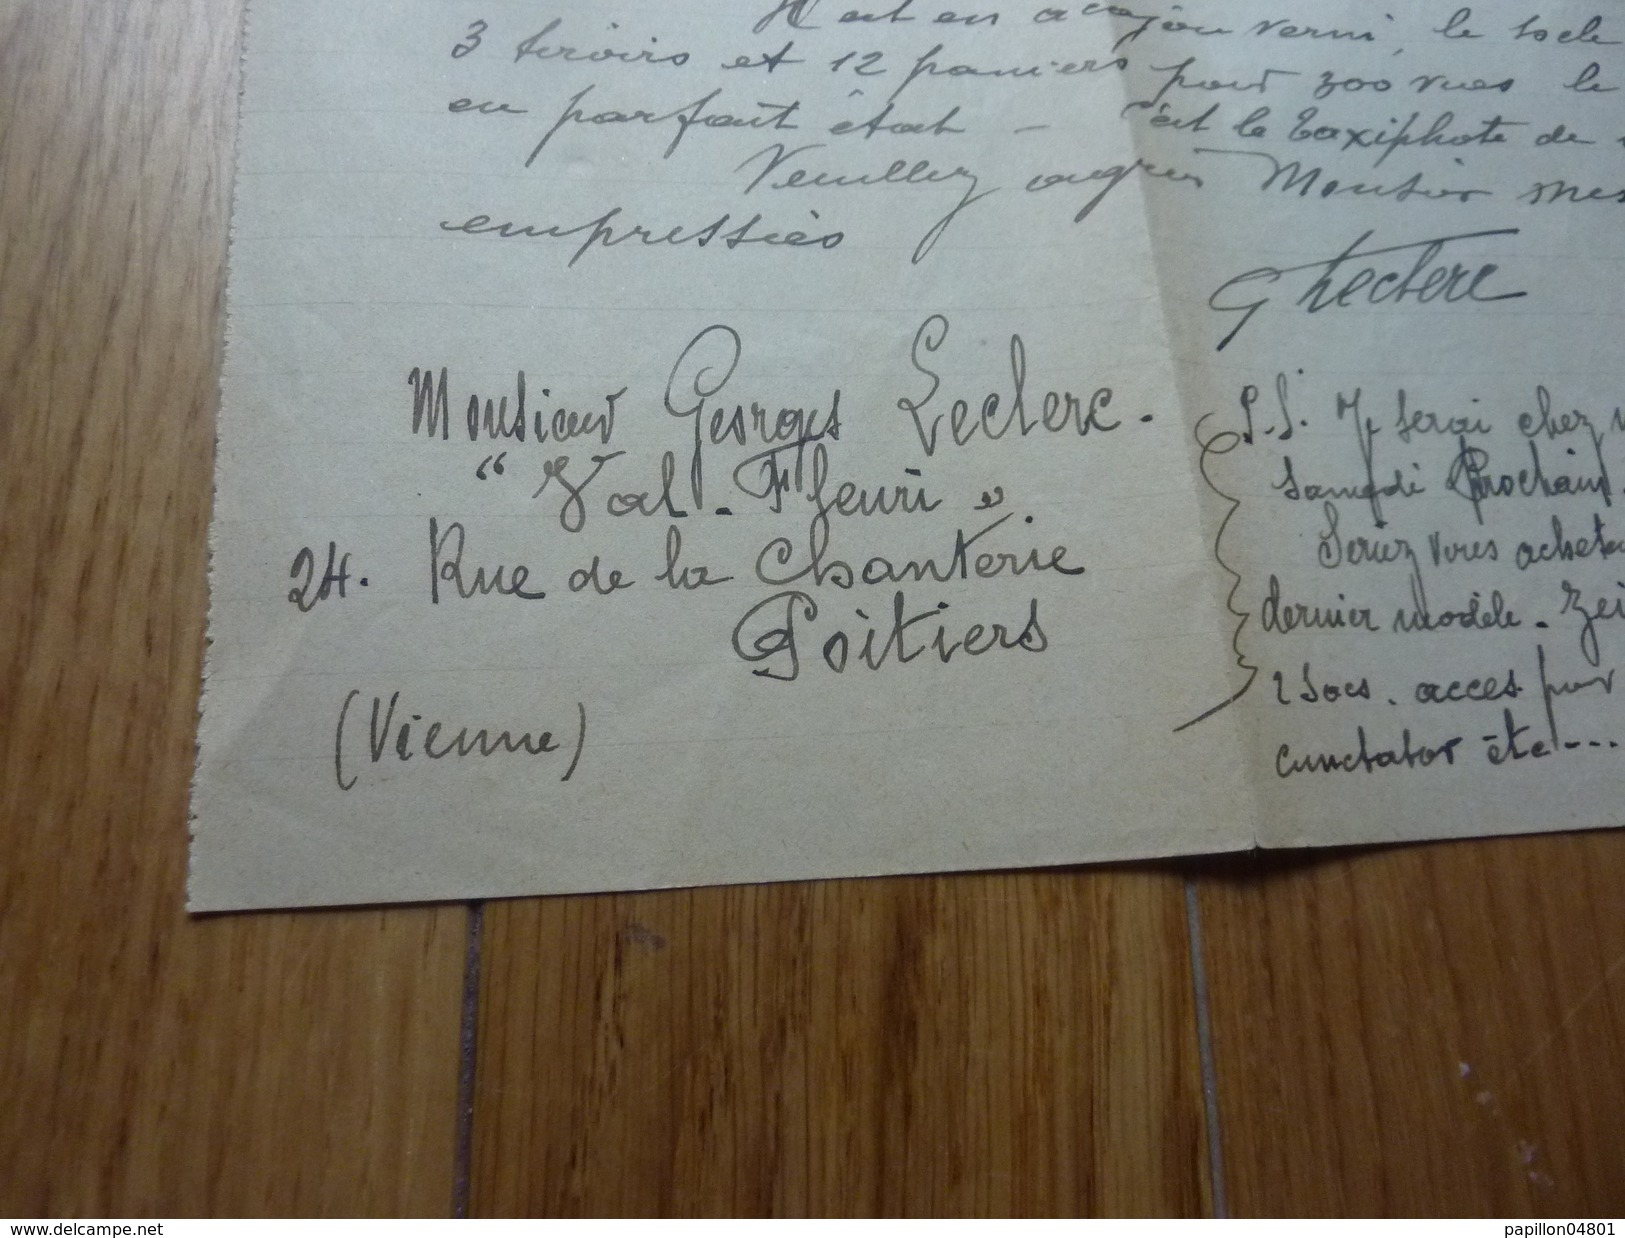 Il est en acajou verni, le socle
3 tiroirs et 12 paniers pour 300 vues le
en parfait état - C'est le Taxiphote de
Veuillez agréer Monsieur mes
empressées
G Leclerc
Monsieur Georges Leclerc.
"Val-Fleuri"
24. Rue de la Chanterie
Poitiers
(Vienne)
P.S. Je serai chez
Samedi Prochain.
Seriez vous acheteur
dernier modèle. Zei
2 sacs. acces. pour
cunctator etc---
www.delcampe.net
papillon04801